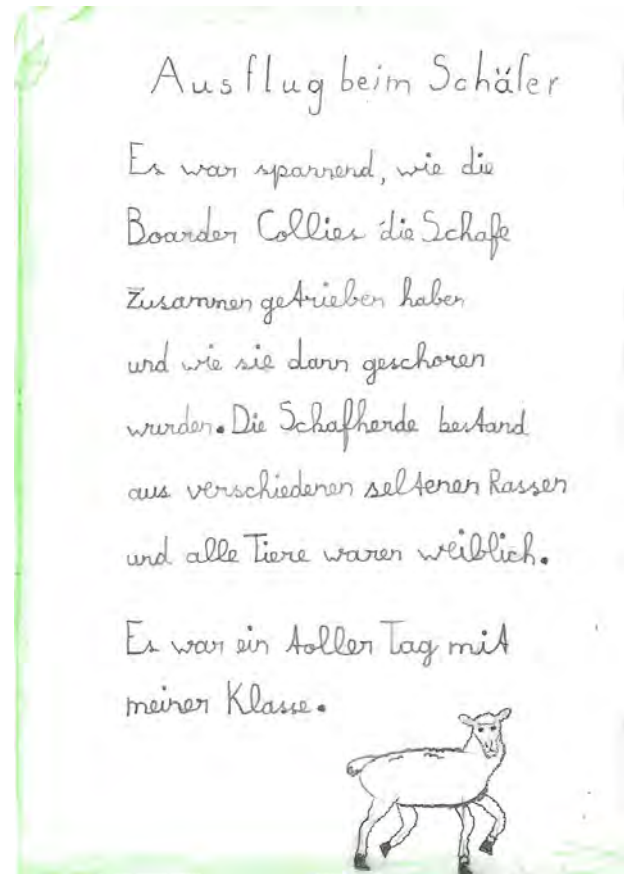 Ausflug beim Schäfer
Es war spannend, wie die
Boarder Collies die Schafe
Zusammen getrieben haben
und wie sie dann geschoren
wurden. Die Schafherde bestand
aus verschiedenen seltenen Rassen
und alle Tiere waren weiblich.
Es war ein toller Tag mit
meiner Klasse.